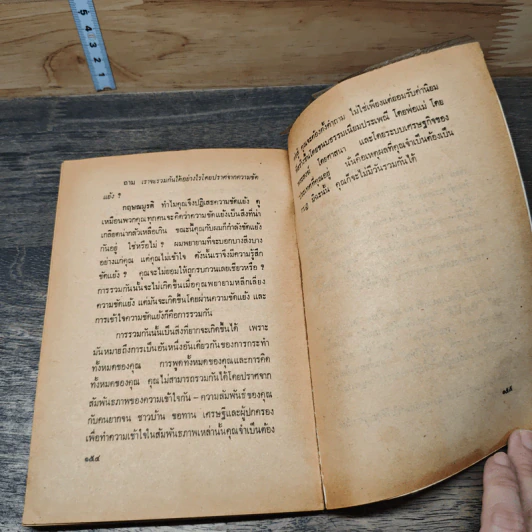 ถาม เราจะรวมกันได้อย่างไรโดยปราศจากความขัด
แย้ง ?
กฤษณมูรติ ทำไมคุณจึงปฏิเสธความขัดแย้ง ดู
เหมือนพวกคุณทุกคนจะคิดว่าความขัดแย้งเป็นสิ่งที่น่า
เกลียดน่ากลัวเหลือเกิน ขณะนี้คุณกับผมก็กำลังขัดแย้ง
กันอยู่ ใช่หรือไม่ ? ผมพยายามที่จะบอกบางสิ่งบาง
อย่างแก่คุณ แต่คุณไม่เข้าใจ ดังนั้นเราจึงมีความรู้สึก
ขัดแย้ง ? คุณจะไม่ยอมให้ถูกรบกวนเลยเชียวหรือ ?
การรวมกันนั้นจะไม่เกิดขึ้นเมื่อคุณพยายามหลีกเลี่ยง
ความขัดแย้ง แต่มันจะเกิดขึ้นโดยผ่านความขัดแย้ง และ
การเข้าใจความขัดแย้งก็คือการรวมกัน
การรวมกันนั้นเป็นสิ่งที่ยากจะเกิดขึ้นได้ เพราะ
มันหมายถึงการเป็นอันหนึ่งอันเดียวกันของการกระทำ
ทั้งหมดของคุณ การพูดทั้งหมดของคุณและการคิด
ทั้งหมดของคุณ คุณไม่สามารถรวมกันได้โดยปราศจาก
สัมพันธภาพของความเข้าใจกัน – ความสัมพันธ์ของคุณ
กับคนยากจน ชาวบ้าน ขอทาน เศรษฐีและผู้ปกครอง
เพื่อทำความเข้าใจในสัมพันธภาพเหล่านั้นคุณจำเป็นต้อง
๑๕๔
คุณจะต้องตั้งคำถาม ไม่ใช่เพียงแต่ยอมรับค่านิยม
โดยขนบธรรมเนียมประเพณี โดยพ่อแม่ โดย
โดยศาสนา และโดยระบบเศรษฐกิจของ
นั่นคือเหตุผลที่คุณจำเป็นต้องเป็น
มิฉะนั้น คุณก็จะไม่มีวันรวมกันได้
๑๕๕
5 4 3 2 1